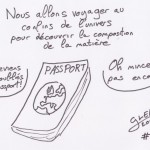 Nous allons voyager au
confins de l'univers
pour découvrir la composition
de la matière
oublié
passeport!
PASSPORT
Oh mince
pas enco
#